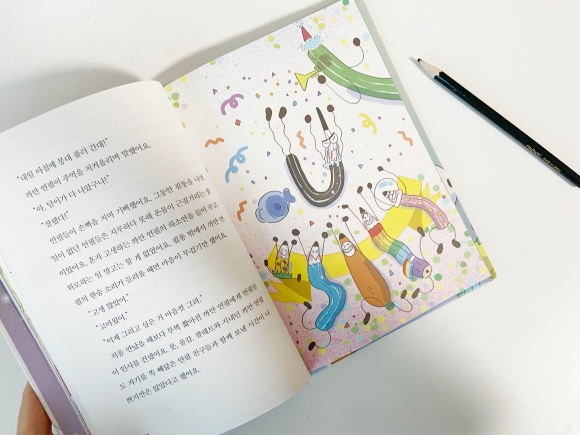 "내일 아침에 붕대 풀러 간대!"
까만 연필이 주먹을 치켜올리며 말했어요.
"아, 덤이가 다 나았구나!"
"잘됐다!"
연필들이 손뼉을 치며 기뻐했어요. 그동안 필통을 나설
일이 없던 연필들은 지루하다 못해 온몸이 근질거리는
이었어요. 혼자 고생하는 까만 연필의 하소연을 들어 주고
위로하는 일 말고는 할 게 없었어요. 필통 밖에서 까만 연
필의 한숨 소리가 들려올 때면 마음이 무겁기만 했어요.
"고생 많았어."
"고마워."
"이제 그리고 싶은 거 마음껏 그려."
처음 만났을 때보다 부쩍 짧아진 까만 연필에게 연필들
이 인사를 건넸어요. 붓, 물감, 팔레트와 지내던 까만 연필
도 자기를 쏙 빼닮은 연필 친구들과 함께 보낸 시간이 나
쁘지만은 않았다고 했어요.